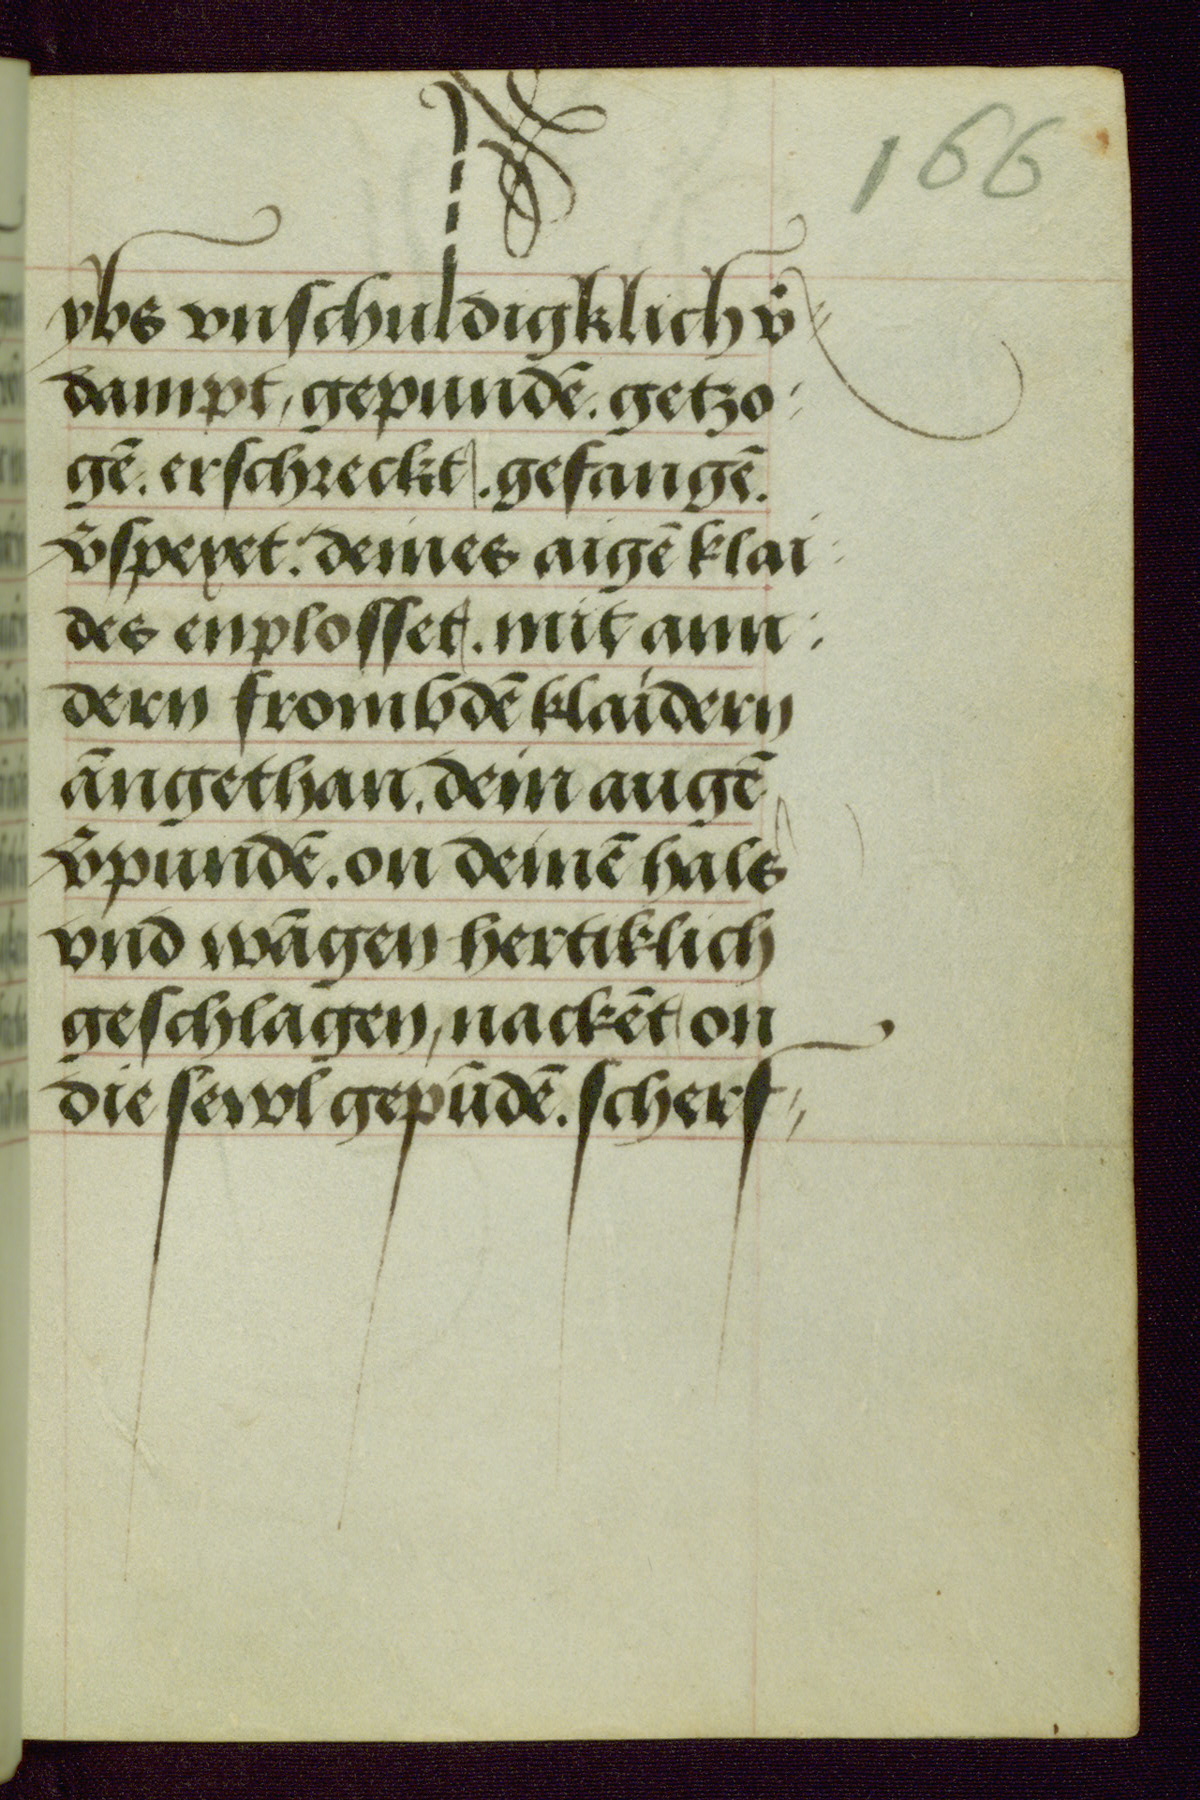 166
ybs vnschuldigklich v̄
dampt, gepundē. getzo:
gē. erschreckt. gefangē.
v̄speyet. deines aigē klai:
des enplosset. mit ann:
dern frombdē klaidern
āngethan. dein augē
v̄pundē. on deinē hals
vnd wāngen hertiklich
geschlagen, nackēt on
die sewl gepūdē. scherf„